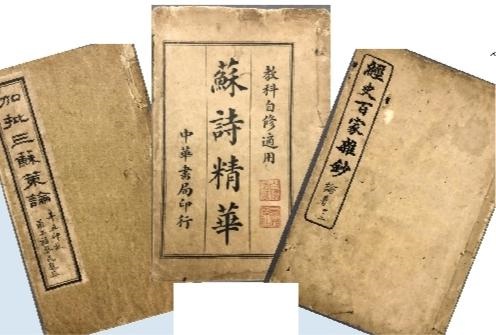 加批三蘇策論
教科自修適用
蘇詩精華
中華書局印行
經史百家雜鈔